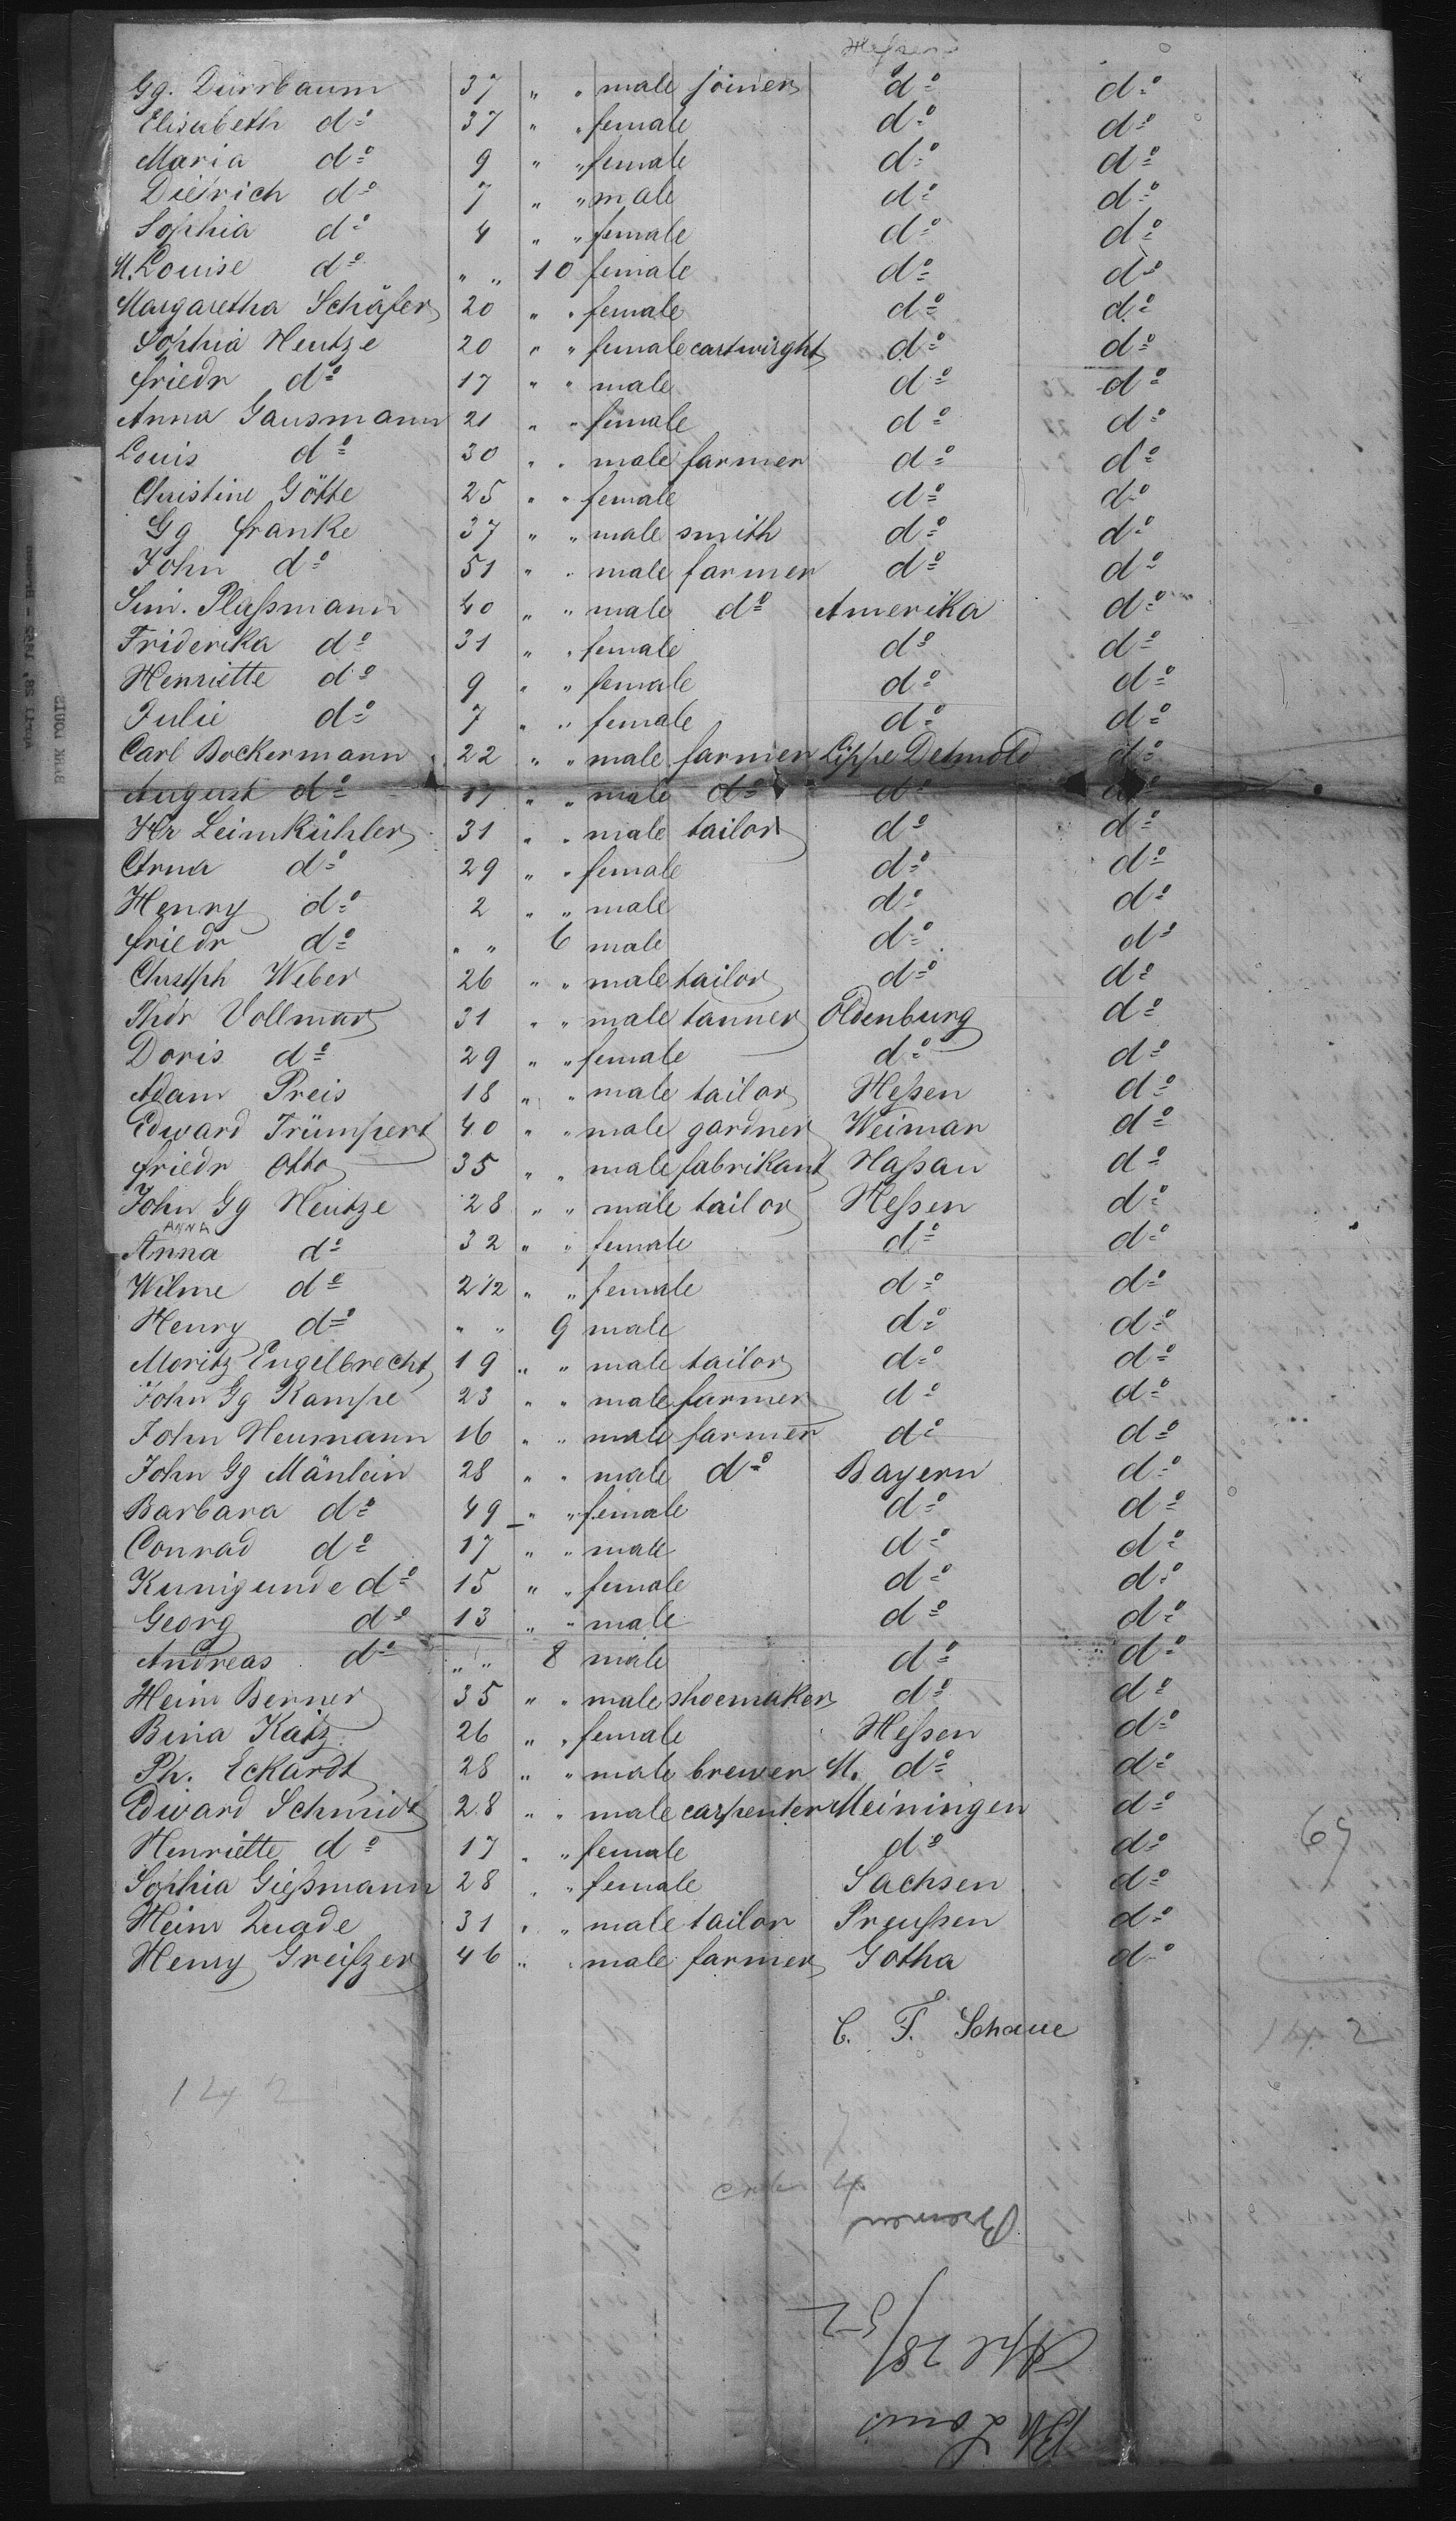 Hessen
Gg. Dürrbaum 37 " " male joiner do do
Elisabeth do 37 " " female do do
Maria do 9 " " female do do
Dietrich do 7 " " male do do
Sophia do 4 " " female do do
M. Louise do " " 10 female do do
Margaretha Schäfer 20 " " female do do
Sophia Heutze 20 " " female cartwright do do
friedr do 17 " " male do do
Anna Gausmann 21 " " female do do
Louis do 30 " " male farmer do do
Christine Götte 25 " " female do do
Gg franke 37 " " male smith do do
John do 51 " " male farmer do do
Sim. Plaßmann 40 " " male do Amerika do
Friderika do 31 " " female do do
Henriette do 9 " " female do do
Julie do 7 " " female do do
Carl Bockermann 22 " " male farmer Lippe Detmold do
August do 17 " " male do do do
Hr Leimkühler 31 " " male tailor do do
Anna do 29 " " female do do
Henry do 2 " " male do do
friedr do " " 6 male do do
Christph Weber 26 " " male tailor do do
Thdr Vollmar 31 " " male tanner Oldenburg do
Doris do 29 " " female do do
Adam Preis 18 " " male tailor Heßen do
Edward Trümpert 40 " " male gardner Weimar do
friedr Otto 35 " " male fabrikant Naßau do
John Gg Heutze 28 " " male tailor Heßen do
ANNA
Anna do 32 " " female do do
Wilme do 2 1/2 " " female do do
Henry do " " 9 male do do
Moritz Engelbrecht 19 " " male tailor do do
John Gg Kampe 23 " " male farmer do do
John Neumann 16 " " male farmer do do
John Gg Mänlein 28 " " male do Bayern do
Barbara do 49 " " female do do
Conrad do 17 " " male do do
Kunigunde do 15 " " female do do
Georg do 13 " " male do do
Andreas do " " 8 male do do
Heinr Berner 35 " " male shoemaker do do
Bina Katz 26 " " female Heßen do
Ph. Eckardt 28 " " male brewer M. do do
Edward Schmidt 28 " " male carpenter Meiningen do
Henriette do 17 " " female do do
Sophia Gießmann 28 " " female Sachsen do
Heinr Quade 31 " " male tailor Preußen do
Henry Greifzer 46 " " male farmer Gotha do
69
C. F. Schaue
142
142
Bremen
Apl 28/52
Bk Louis